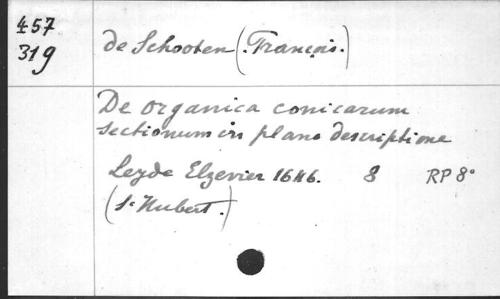 457
319
de Schooten (François.)
De organica conicarum
sectionum in plano descriptione
Leyde Elzevier 1646. 8 RP 8°
(St Hubert.)